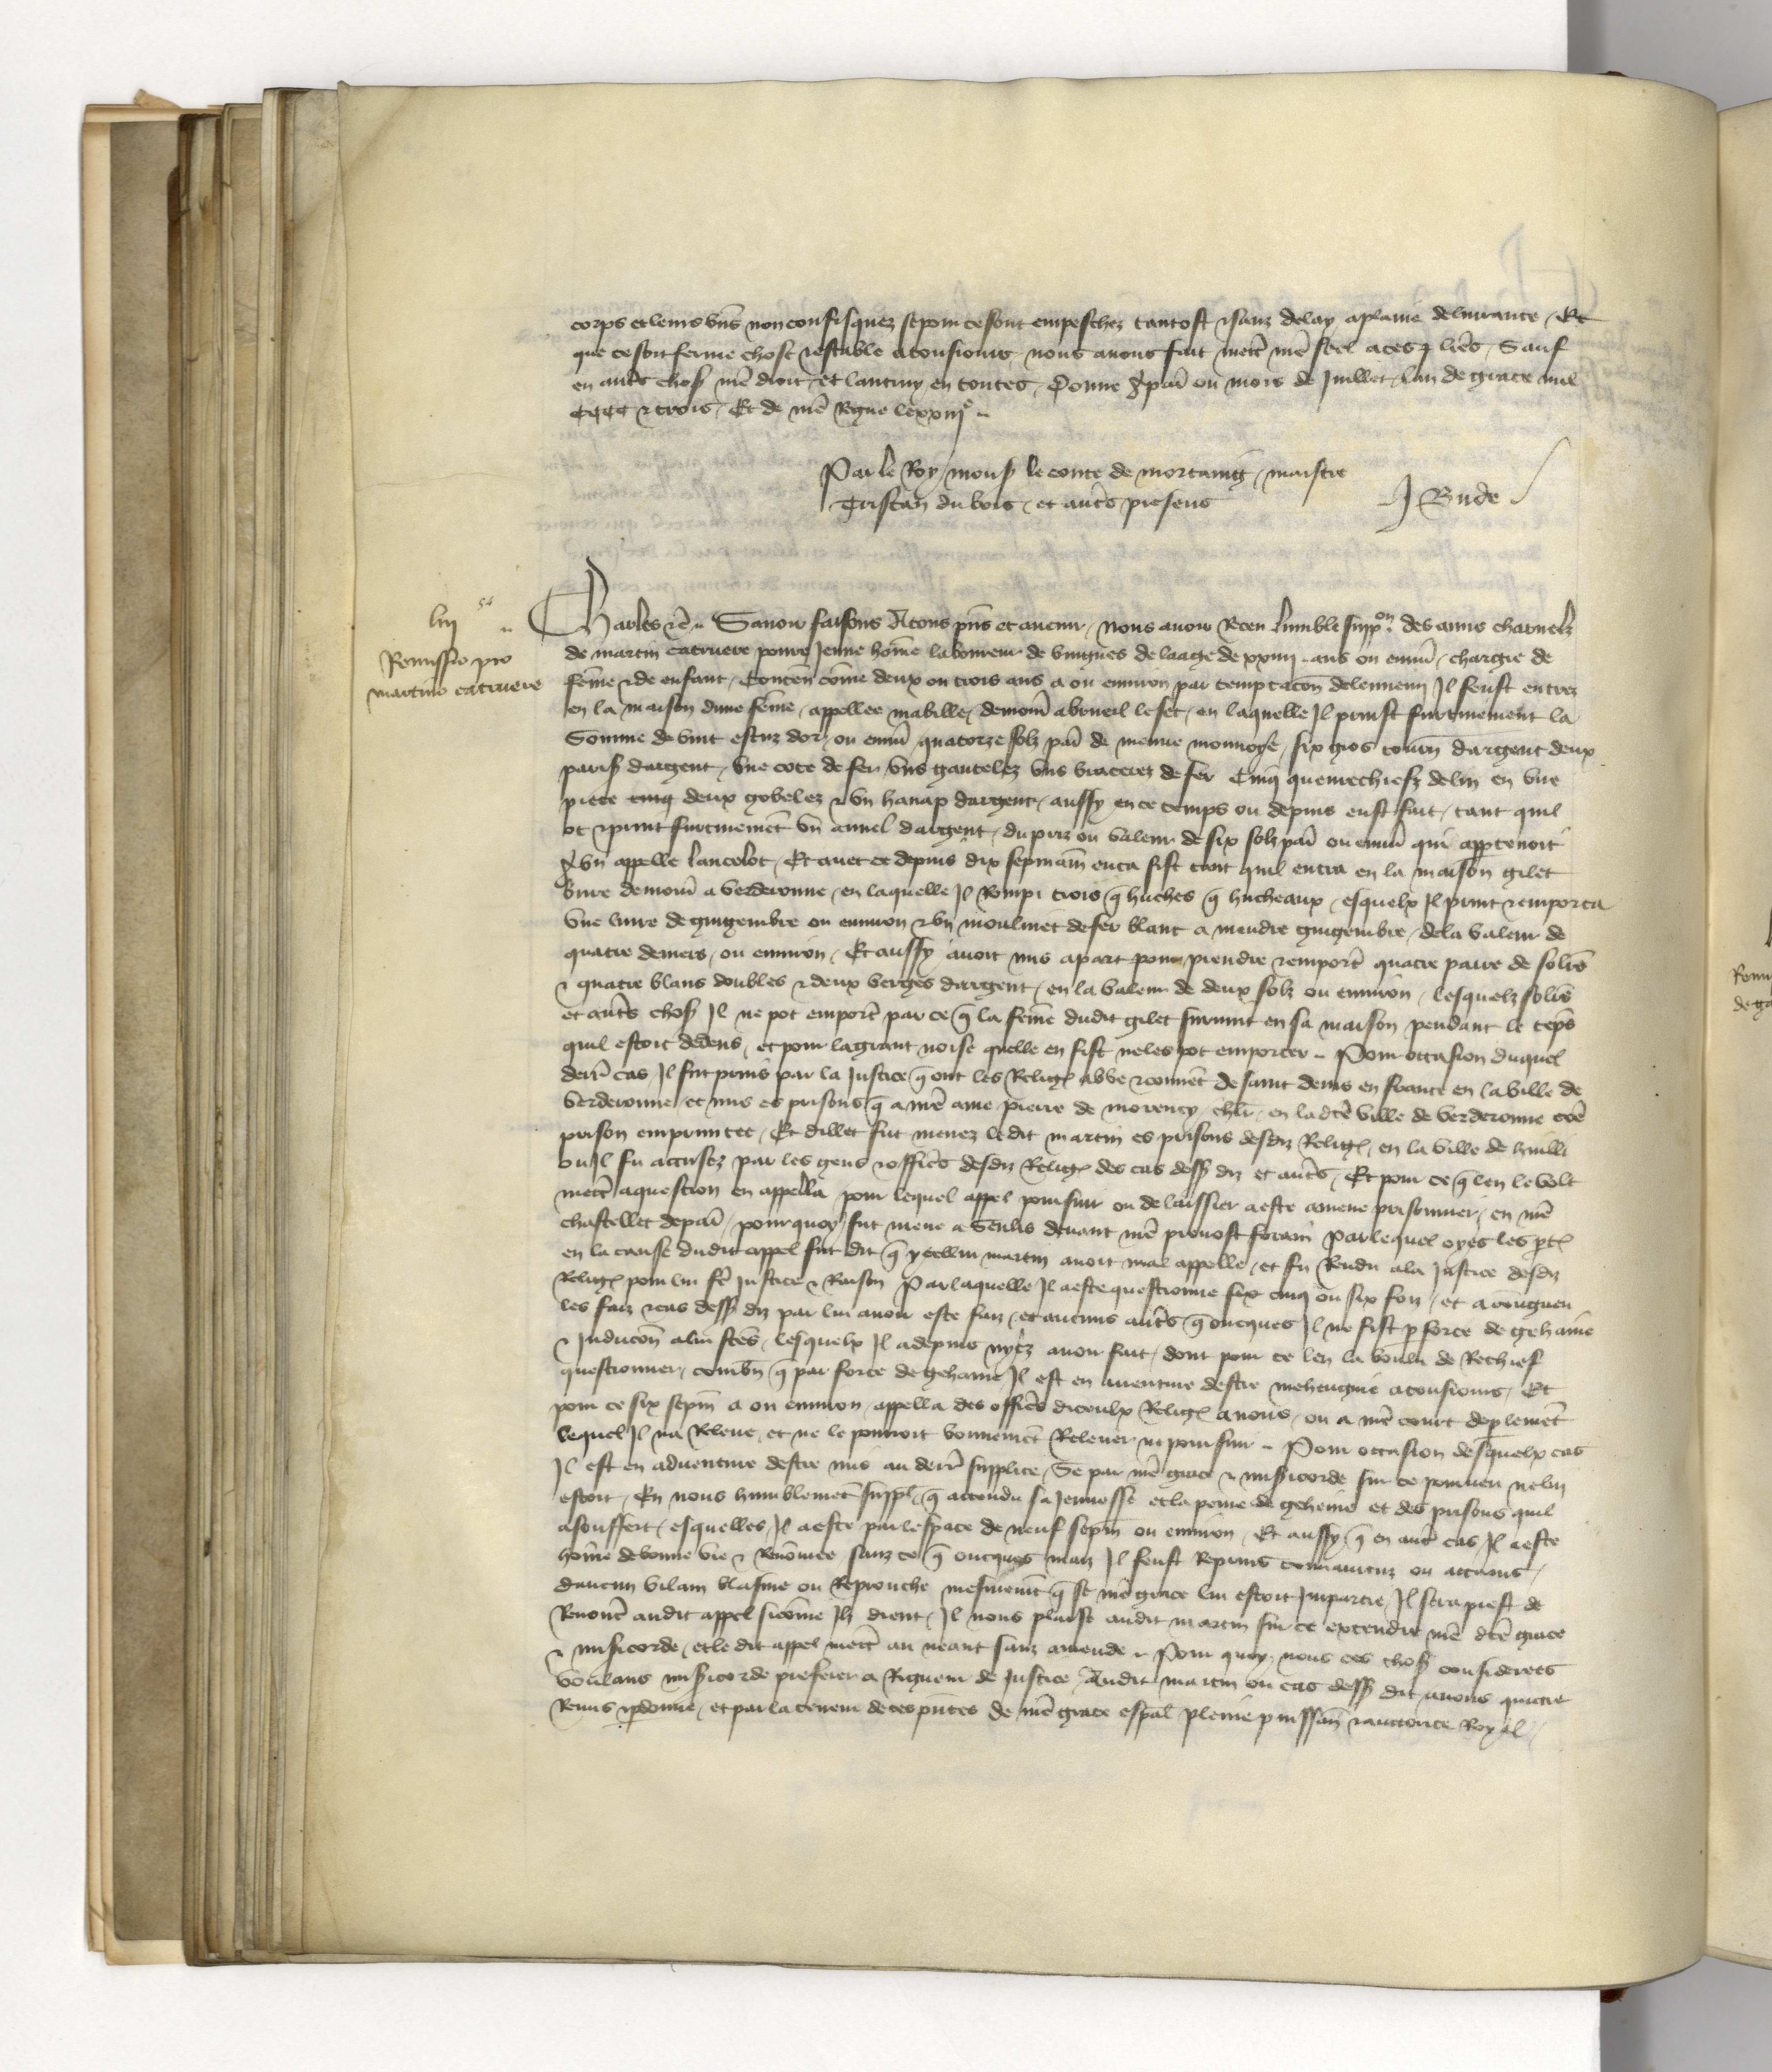 corps et leurs biens non confisquez se pour ce sont empeschez tantost & sanz delay a plaine delivrance / Et
que ce soit ferme chose & estable a tousiours nous avons fait mettre nostre seel a ces lettres / Sauf
en autres choses nostre droit / et lautruy en toutes / Donne a paris ou mois de Juillet / lan de grace mil
CCCC & trois / Et de nostre Regne le xxiije
Par le Roy / mons le conte de mortaing / maistre
Tristan du bois / et autres presens J Bude
54
liiij
Charles &c Savoir faisons a tous presens et avenir / nous avoir Receu lumble supplicacion des amis charnelz
Remissio pro
martino catruere
de martin catruere povre Jeune homme laboureur de vingnes de laage de xxiiij ans ou environ / chargie de
femme & de enfant / Contenant comme deux ou trois ans a ou environ par temptacion de lennemi Il feust entrez
en la maison dune femme / appellee mabille / demourant a brueil le sec / en laquelle Il prinst furtivement la
Somme de vint escuz dor / ou environ quatorze solz parisis de menue monnoye / six gros tournois dargent deux
parisis dargent / une cote de fer uns gantelez uns bracerez de fer Cinq queuvrechiefz de lin en une
piece cinq deux gobelez & un hanap dargent / aussy en ce temps ou depuis eust fait / tant quil
ot & print furtivement un annel dargent / du pris ou valeur de six solz parisis ou environ qui appartenoit
a un appelle lancelot / Et avec ce depuis dix sepmaines enca fist tant quil entra en la maison gilet
buire demourant a verderonne / en laquelle Il Rompi trois que huches que hucheaux / esquelx Il print & emporta
une livre de gingembre ou environ & un moulinet de fer blanc a mieudre gingembre / de la valeur de
quatre deniers / ou environ / Et aussy avoit mis a part pour prendre & emporter quatre paire de solers
& quatre blans doubles & deux verges dargent / en la valeur de deux solz ou environ / lesquelz solers
et autres choses Il ne pot emporter par ce que la femme dudit gilet survint en sa maison pendant le temps
quil estoit dedens / et pour la grant noise quelle en fist ne les pot emporter Pour occasion duquel
derrenier cas / Il fut prins par la Justice que ont les Religieux abbe & convent de saint denis en france en la ville de
verderonne / et mis es prisons que a nostre ame pierre de morency / chevalier / en ladicte ville de verderonne
prison empruntee / Et dillec fut menez ledit martin es prisons desdiz Religieux / en la ville de
ou Il fu accusez par les gens & officiers desdiz Religieux des cas dessus diz et autres / Et pour ce que len le volt
mettre a question en appella pour lequel appel poursuir ou delaissier a este amene prisonnier / en nostre
chastellet de paris / pour quoy / fut mene a Senlis devant nostre prevost forain par lequel oyes les parties
en la cause dudit appel fut dit que ycellui martin avoit mal appelle / et fu Rendu a la Justice desdiz
Religieux pour lui faire Justice & Raison Par laquelle Il a este questionne six cinq ou six foiz / et a congneu
les faiz & cas dessus diz par lui avoir este faiz / et aucuns autres que oncques Il ne fist par force de gehaine
& Induccion a lui faictes / lesquelx Il a depuis nyez avoir fait / dont pour ce len la voulu de Rechief
questionner / combien que par force de gehaine Il est en aventure destre mehengnie a tousiours / Et
pour ce six sepmaines a ou environ / appella des officiers diceulx Religieux a nous / ou a nostre court de parlement
lequel Il na Releve / et ne le pourroit bonnement Relever ne poursuir Pour occasion desquelx cas
Il est en adventure destre mis au derrenier supplice / Se par nostre grace & misericorde sur ce pourveu ne lui
estoit / En nous humblement suppliant que attendu sa Jeunesse et la peine de geheine et des prisons quil
a souffert / esquelles Il a este par lespace de neuf sepmaines ou environ / Et aussy que en autres cas / Il a este
homme de bonne vie & Renommee sanz ce que oncques maiz Il feust Reprins convaincuz ou attains /
daucun vilain blasme ou Reprouche mesmement que se nostre grace lui estoit Impartie / Il sera prest de
Renoncer audit appel si comme Ilz dient / Il nous plaise audit martin sur ce extendre nostre dicte grace
& misericorde / et le dit appel mettre au neant sanz amende Pour quoy nous ces choses considerees
voulans misericorde preferer a Rigueur de Justice / Audit martin ou cas dessus dit avons quictie
Remis & pardonne / et par la teneur de ces presentes de nostre grace especial pleine puissance & auctorite Royal /